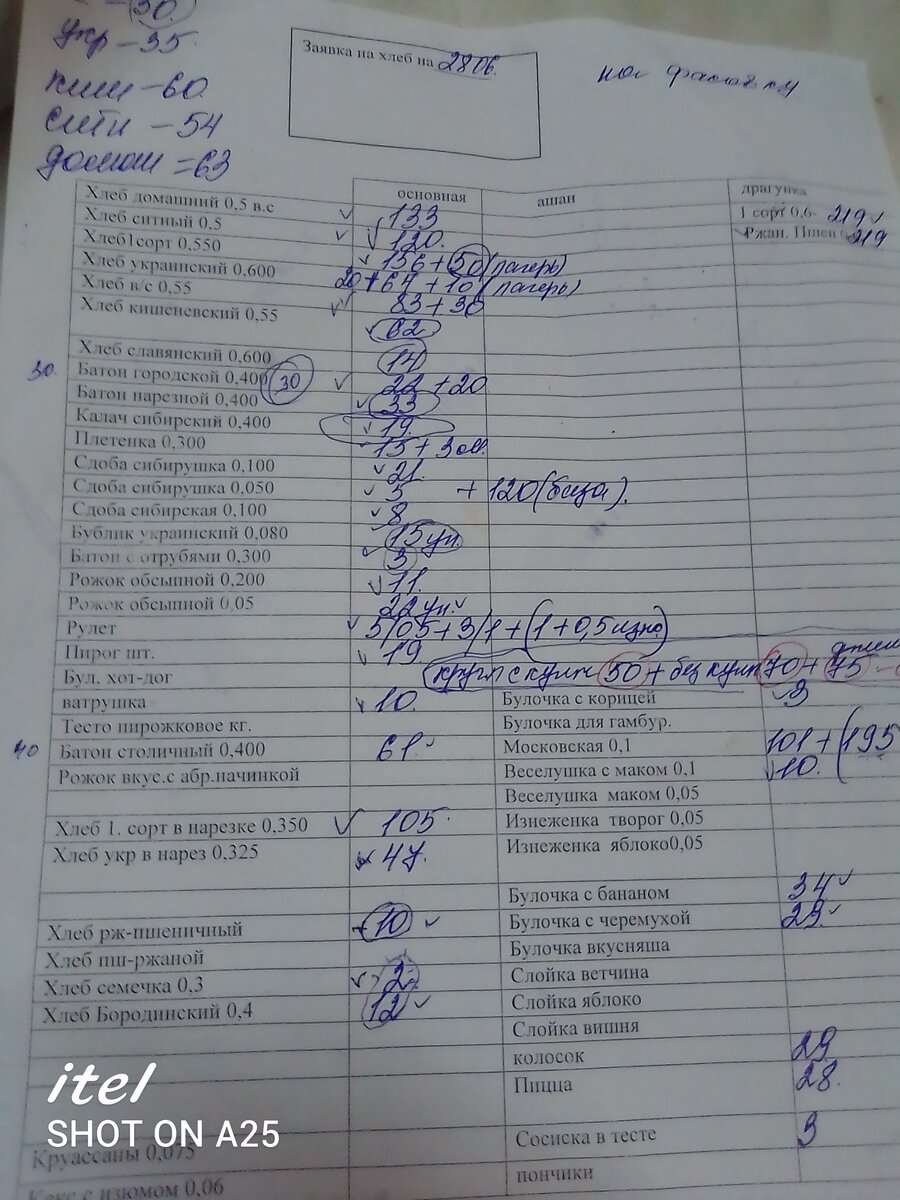 30.
укр - 35.
киш - 60.
ситн - 54
домаш = 63
Заявка на хлеб на 28 06.
на фасовку
основная ашан драгунка
Хлеб домашний 0,5 в.с 133 1 сорт 0,6 219
Хлеб ситный 0.5 120. Ржан. Пшен 219
Хлеб1сорт 0,550 156 + 50 (лагерь)
Хлеб украинский 0,600 20 + 64 + 10 (лагерь)
Хлеб в/с 0,55 83 + 30
Хлеб кишеневский 0,55 62
Хлеб славянский 0,600 14
30. Батон городской 0,400 30 22 + 20
Батон нарезной 0,400 33
Калач сибирский 0,400 19.
Плетенка 0,300 15 + 3
Сдоба сибирушка 0,100 21.
Сдоба сибирушка 0,050 5 + 120 (база).
Сдоба сибирская 0,100 8
Бублик украинский 0,080 15 уп
Батон с отрубями 0,300 3
Рожок обсыпной 0,200 11.
Рожок обсыпной 0,05 22 уп.
Рулет 5/05 + 3/1 + (1 + 0,5 изю.)
Пирог шт. 19
Бул. хот-дог кругл с кунж 50 + без кунж 70 + 75
ватрушка 10. Булочка с корицей 3
Тесто пирожковое кг. Булочка для гамбур.
40 Батон столичный 0,400 61. Московская 0,1 101 + (195
Рожок вкус.с абр.начинкой Веселушка с маком 0,1 10.
Веселушка маком 0,05
Хлеб 1. сорт в нарезке 0,350 105. Изнеженка творог 0,05
Хлеб укр в нарез 0,325 47. Изнеженка яблоко0,05
Булочка с бананом 34
Хлеб рж-пшеничный 10 Булочка с черемухой 29.
Хлеб пш-ржаной Булочка вкусняша
Хлеб семечка 0,3 2 Слойка ветчина
Хлеб Бородинский 0,4 12 Слойка яблоко
Слойка вишня
колосок 29
Пицца 28.
Круассаны 0,075 Сосиска в тесте 3
Кекс с изюмом 0,06 пончики
itel
SHOT ON A25